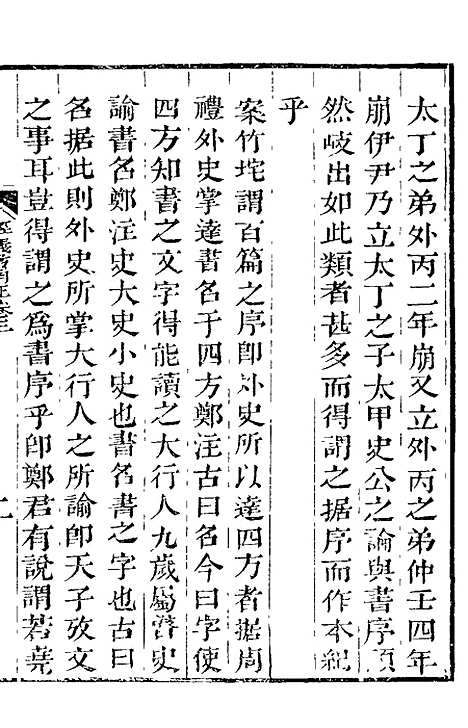 太丁之弟外丙二年崩又立外丙之弟仲壬四年
崩伊尹乃立太丁之子太甲史公之論與書序頂
然岐出如此類者甚多而得謂之据序而作本紀
乎
案竹垞謂百篇之序卽外史所以達四方者据周
禮外史掌達書名于四方鄭注古曰名今曰字使
四方知書之文字得能讀之大行人九歲屬瞽史
諭書名鄭注史大史小史也書名書之字也古曰
名据此則外史所掌大行人之所諭卽天子攷文
之事耳豈得謂之爲書序乎卽鄭君有說謂若堯